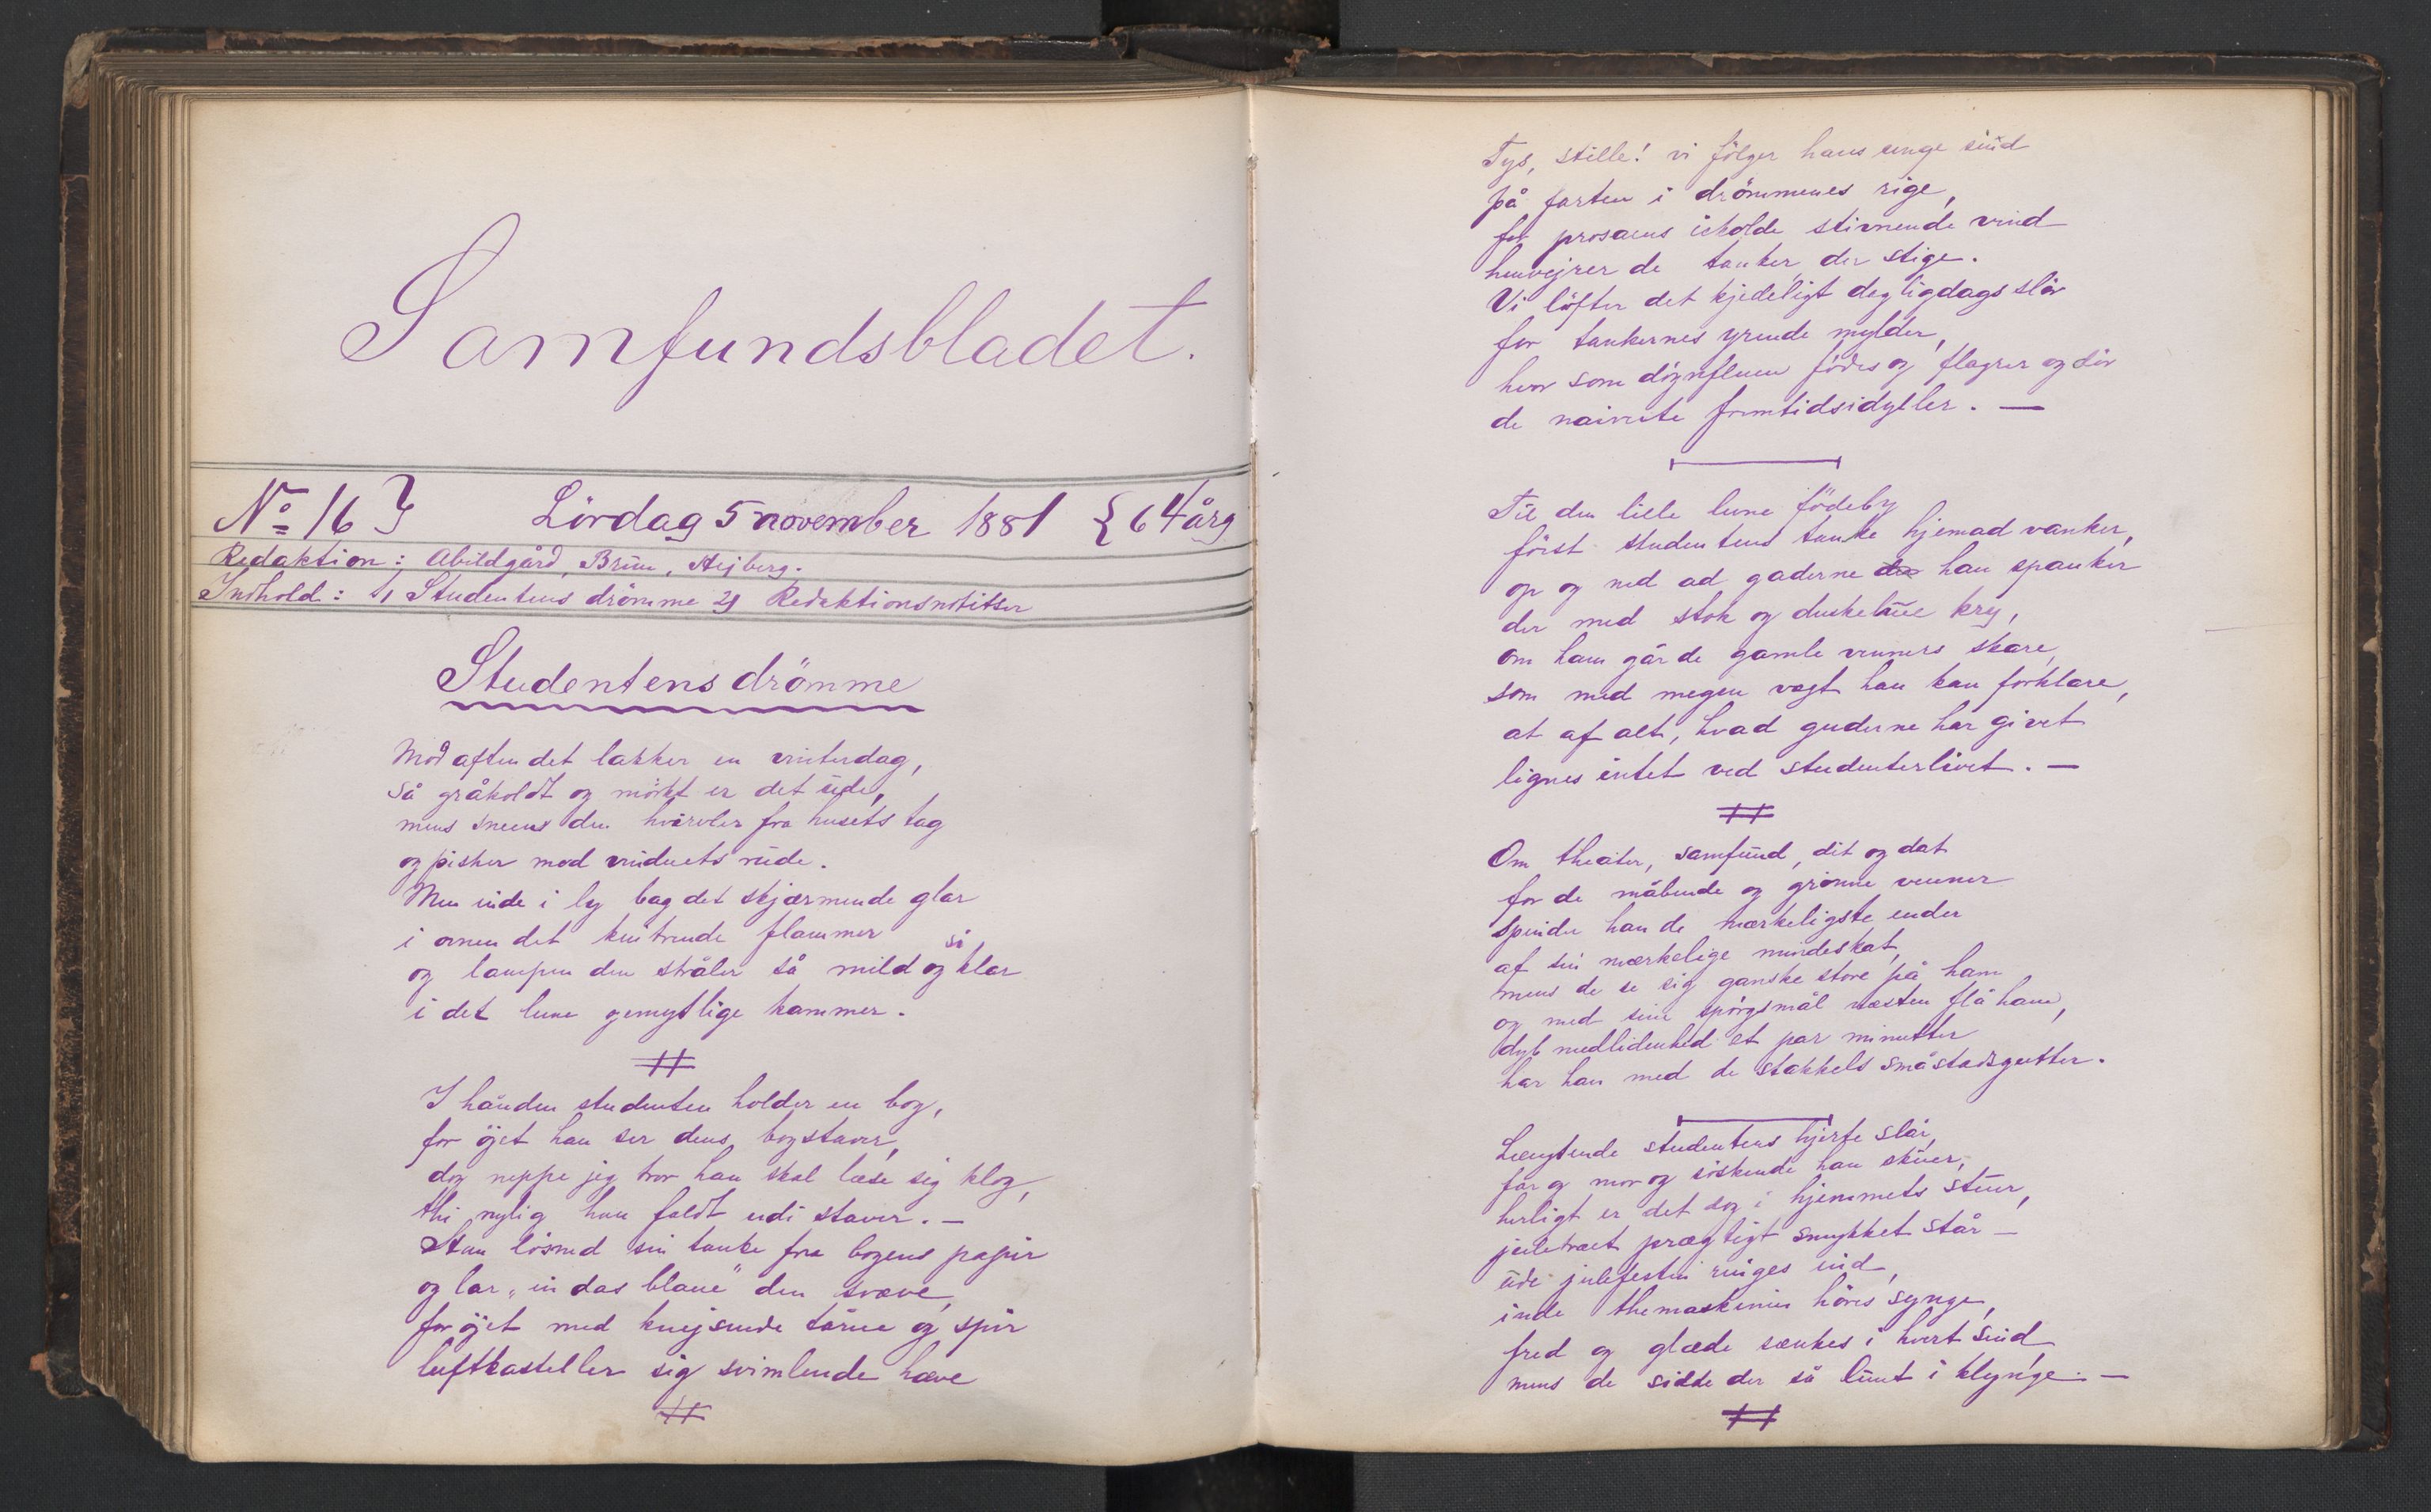 Samfundsbladet.
No 16 } Lördag 5 november 1881 { 64 årg
Redaktion: Abildgård, Brun, Hejberg.
Indhold: 1, Studentens drömme 2) Redaktionsnotitser
Studentens drömme
Mod aften det lakker en vinterdag,
så gråkoldt og mörkt er det ude,
mens sneens den hvirvler fra husets tag
og pisker mod vinduets rude.
Men inde i ly bag det skjærmende glar
i ovnen det knitrende flammer
og lampen den stråler så mild og så klar
i det lune gemytlige kammer.
I hånden studenten holder en bog,
for öjet han ser dens bogstaver,
dog neppe jeg tror han skal læse sig klog,
thi nylig han faldt udi staver. —
Han lösned sin tanke fra bogens papir
og lar „in das blaue" den svæve,
for öjet med knejsende tårne og spir
luftkasteller sig svimlende hæve
Tys, stille! vi fölger hans unge sind
på farten i drömmenes rige,
for prosaens iskolde stivnende vind
henvejrer de tanker der stige.
Vi löfter det kjedeligt dagligdags slör
for tankernes yrende mylder,
hvor som dögnfluen födes og flagrer og dör
de naiveste fremtidsidyller. —
Til den lille lune födeby
först studentens tanke hjemad vanker,
op og ned ad gaderne der han spanker
der med stok og duskelue kry,
om ham går de gamle venners skare,
som med megen vægt han kan forklare,
at af alt, hvad guderne har givet
lignes intet ved studenterlivet. —
Om theater, samfund, dit og dat
for de måbende og grönne venner
spinder han de mærkeligste ender
af sin mærkelige mindeskat,
mens de se sig ganske store på ham
og med sine spörgsmål næsten flå ham,
dyb medlidenhed et par minutter
har han med de stakkels småstadsgutter.
Længtende studentens hjerte slår,
far og mor og söskende han skuer,
herligt er det dog i hjemmets stuer,
juletræet prægtigt smykket står —
ude julefesten ringes ind,
inde themaskinen höres synge,
fred og glæde sænkes i hvert sind
mens de sidde der så lunt i klynge. —